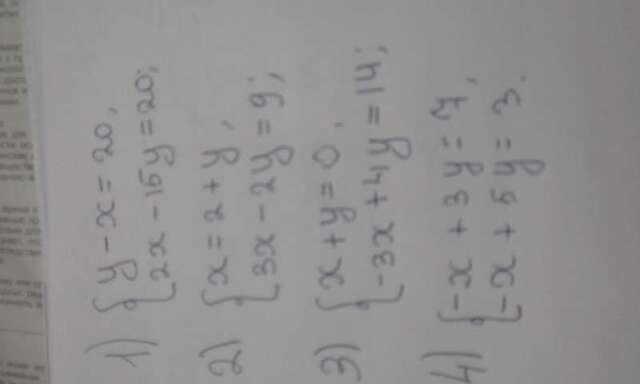 1) { y - x = 20,
2x - 15y = 20;
2) { x = 2 + y,
3x - 2y = 9;
3) { x + y = 0,
-3x + 4y = 14;
4) { -x + 3y = 7,
-x + 5y = 3.